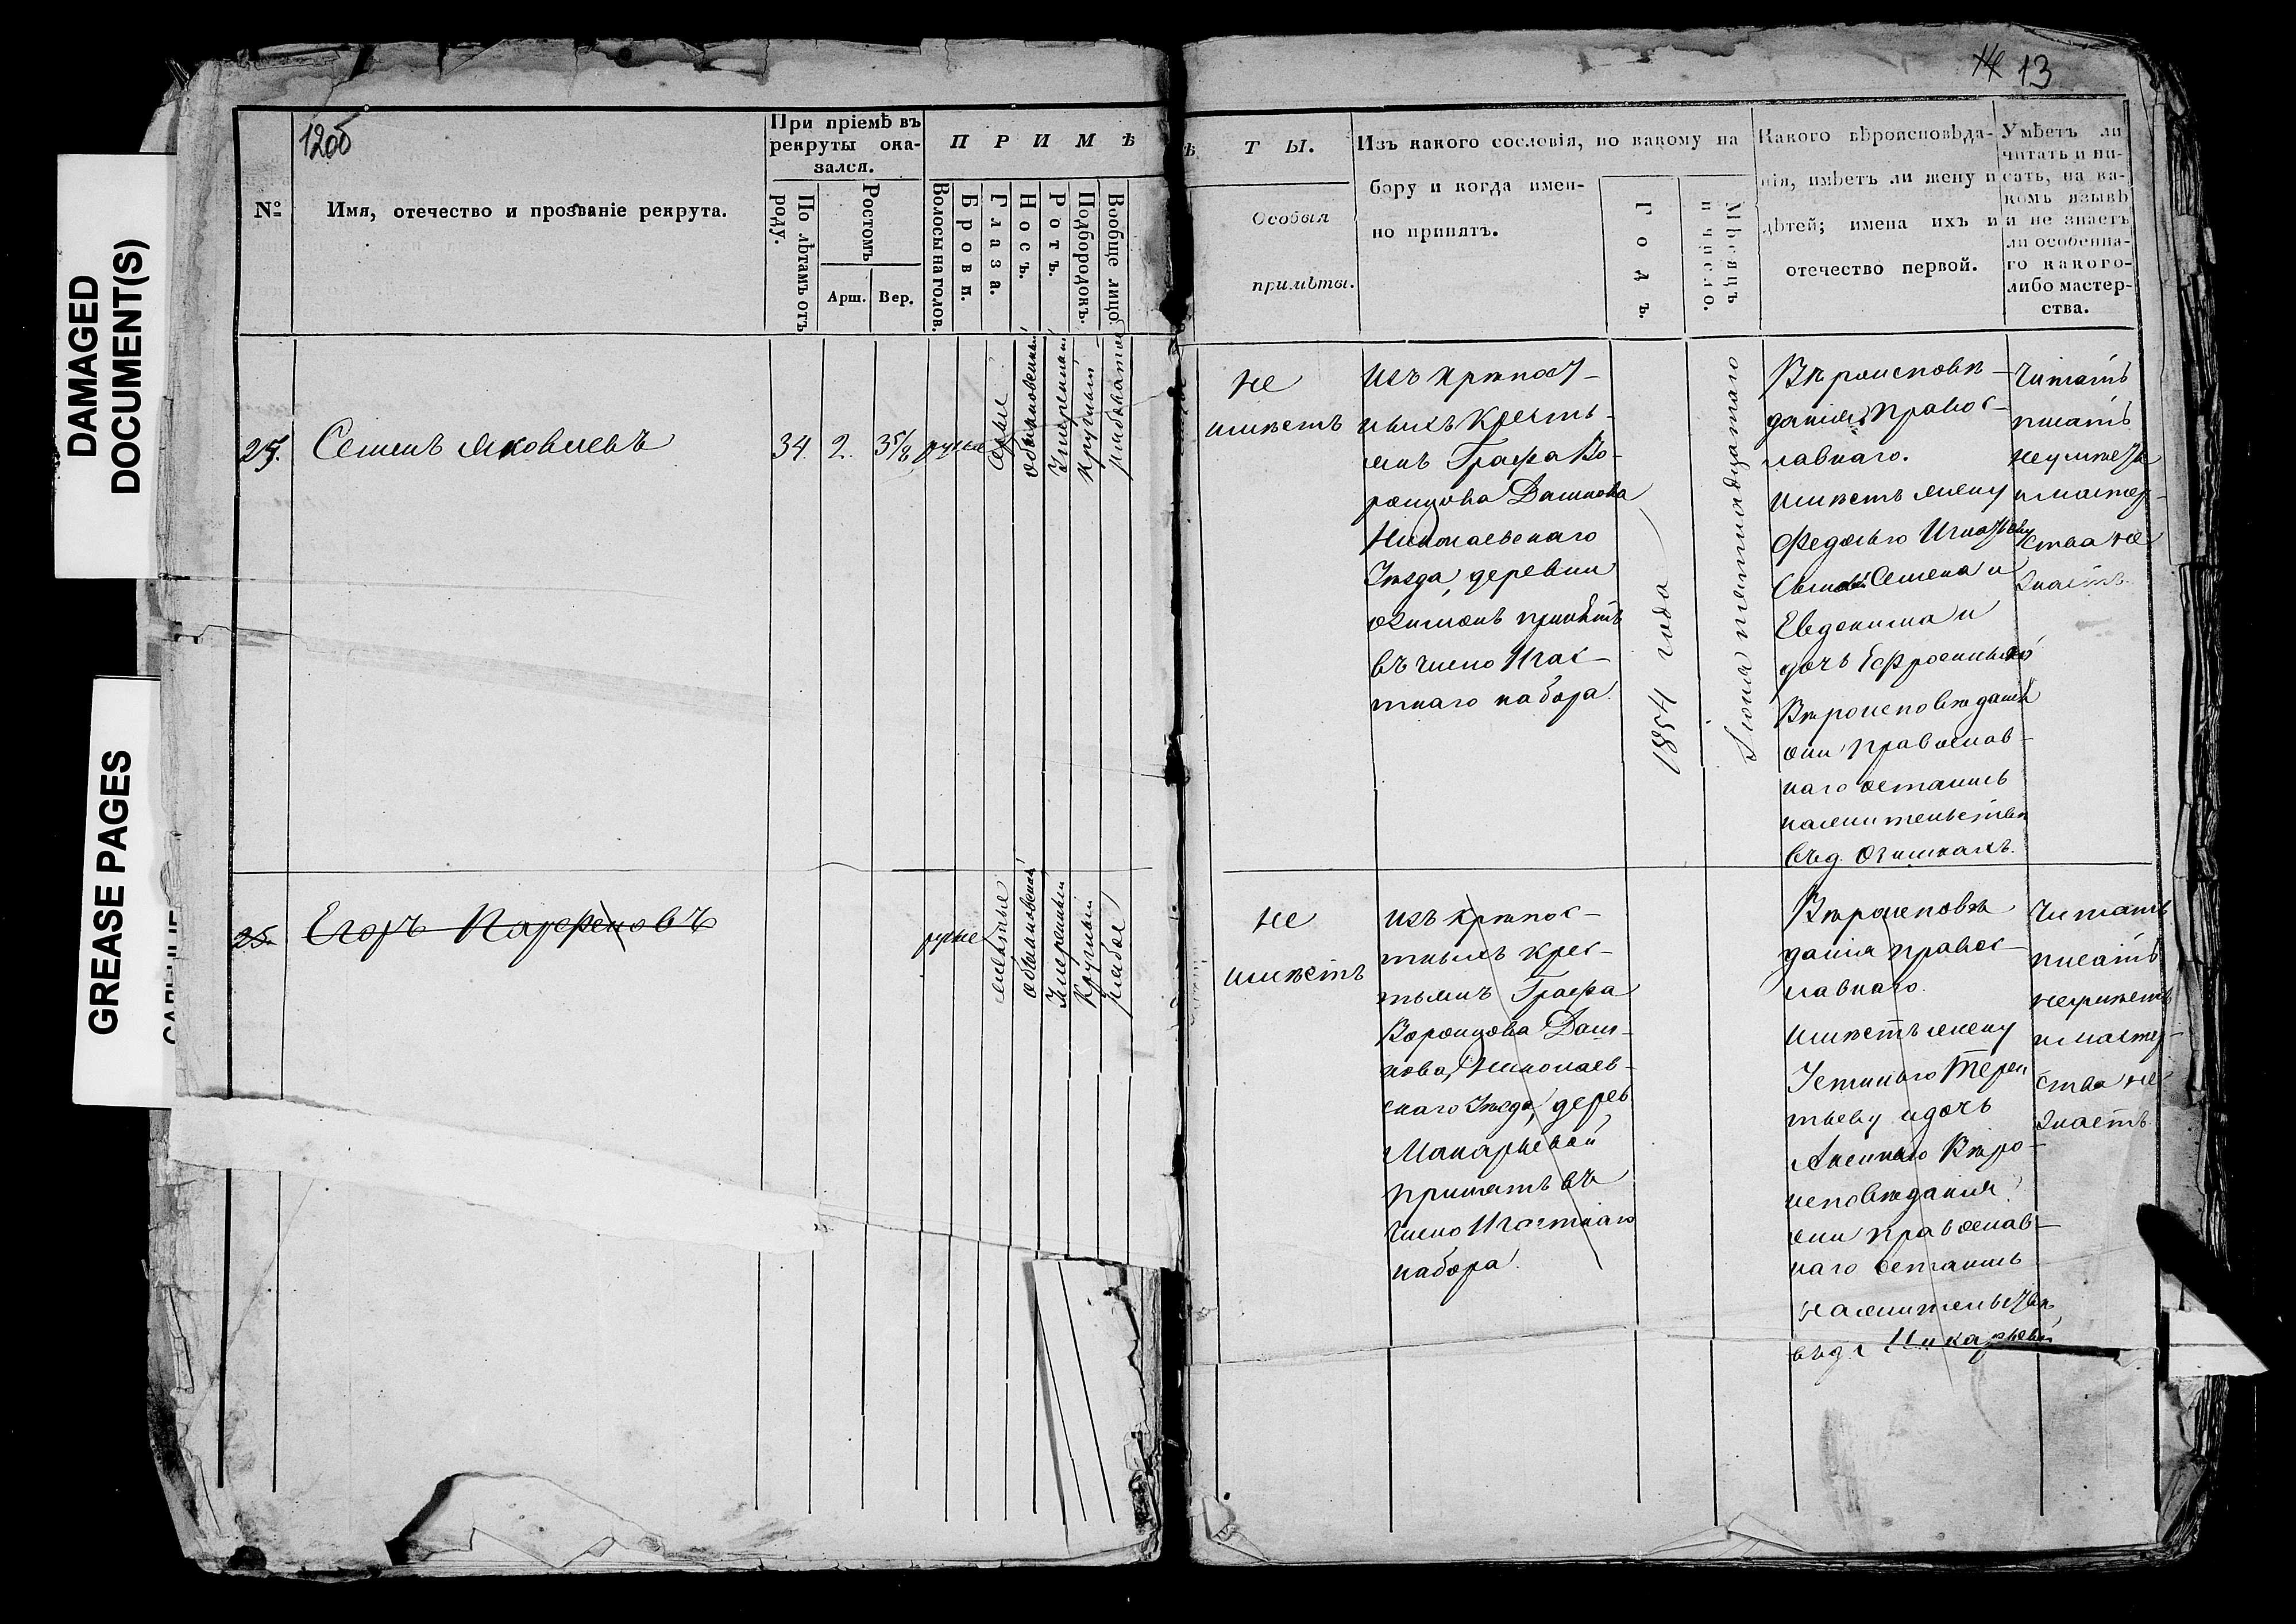 DAMAGED
DOCUMENT(S)
GREASE PAGES
13
1200
№
Имя, отечество и прозваніе рекрута.
При пріемѣ въ
рекруты ока-
зался.
По лѣтамъ отъ
роду.
Ростомъ
Арш. Вер.
ПРИМѢ
Волосы на голов.
Брови.
Глаза.
Носъ.
Ротъ.
Подбородокъ.
Вообще лицо.
ѣ ТЫ.
Особыя
примѣты.
Изъ какого сословія, по какому на
бору и когда имен-
но принятъ.
Годъ.
Мѣсяцъ
и число.
Какого вѣроисповѣда-
нія, имѣетъ ли жену и
дѣтей; имена ихъ и
отечество первой.
Умѣетъ ли
читать и пи-
сать, на ка-
комъ языкѣ
и не знаетъ
ли особенна-
го какого-
либо мастер-
ства.
25. Семенъ Яковлевъ
34 2. 3 5/8
русые
серые
обыкновенный
Умеренный
круглый
рябоватое
не
имѣетъ
изъ крѣпост-
ныхъ Кресть-
янъ Графа Во-
ронцова Дашкова
Николаевскаго
Уѣзда, деревни
принятъ
въ число 11 час-
тнаго набора.
1854 года
Вѣроисповѣ-
данія Правос-
лавнаго.
имѣетъ жену
Федосью Игнатьеву
Семена и
Евдокима и
дочь Ефросинью
Вѣроисповѣданія
они православ-
наго остались
на жительствѣ
въ д.
Читать
писать
не умѣетъ
и мастер-
ства не
знаетъ.
25. Егоръ Парфеновъ
русые
желтые
обыкновенный
Умеренный
Круглый
рябое
не
имѣетъ
изъ крѣпос-
тныхъ крес-
тьянъ Графа
Воронцова Даш-
кова, Николаев-
скаго Уѣзда, дерев.
Макарьевой
принятъ въ
число 11 частнаго
набора.
Вѣроисповѣ
данія правос-
лавнаго.
имѣетъ жену
Устинью Терен
тьеву и дочь
Аксинью Вѣро-
исповѣданія
они православ-
наго остались
на жительствѣ
въ д.
Читать
писать
не умѣетъ
и мастер-
ства не
знаетъ.